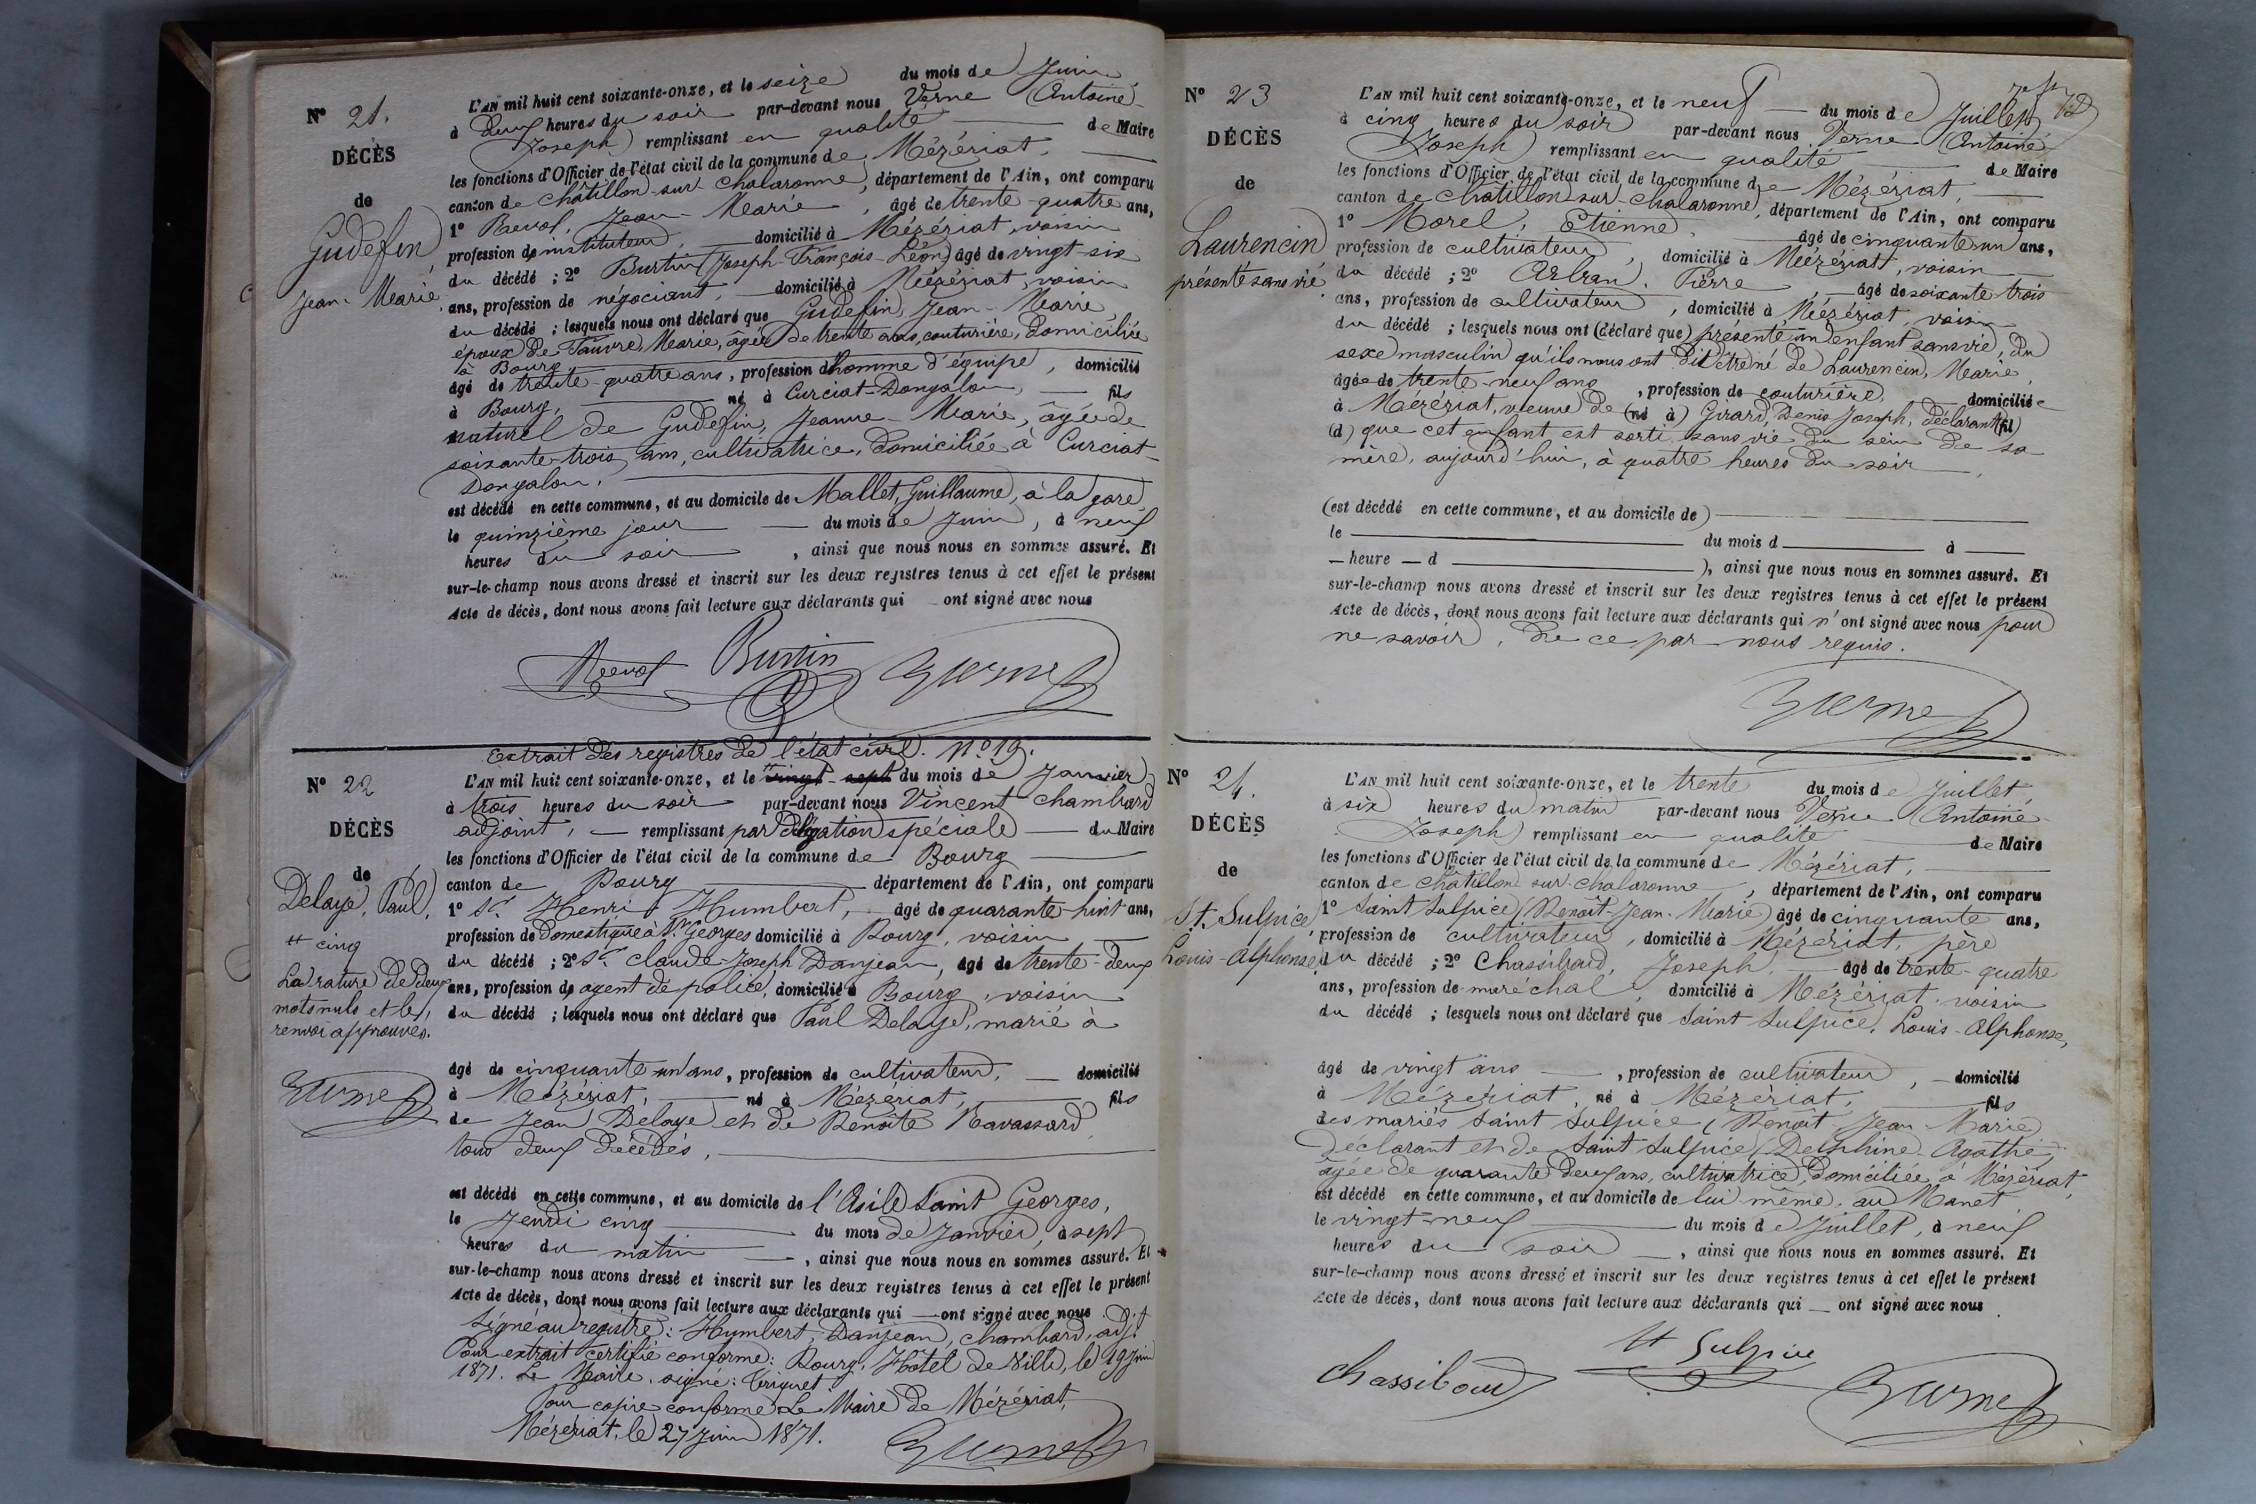 N° 21.
DÉCÈS
de
Gudefin
Jean-Marie
L'AN mil huit cent soixante-onze, et le seize du mois de Juin
à deux heures du soir par-devant nous Verne (Antoine-
Joseph) remplissant en qualité de Maire
les fonctions d'Officier de l'état civil de la commune de Mézériat,
canton de Châtillon-sur-Chalaronne, département de l'Ain, ont comparu
1° Revol, Jean-Marie, âgé de trente-quatre ans,
profession de instituteur, domicilié à Mézériat, voisin
du décédé ; 2° Burtin (Joseph-François-Léon) âgé de vingt-six
ans, profession de négociant, domicilié à Mézériat, voisin
du décédé ; lesquels nous ont déclaré que Gudefin, Jean-Marie
époux de Favre, Marie, âgée de trente ans, couturière, domiciliée
à Bourg
âgé de trente-quatre ans, profession d'homme d'équipe, domicilié
à Bourg, né à Curciat-Dongalon, fils
naturel de Gudefin, Jeanne-Marie, âgée de
soixante-trois ans, cultivatrice, domiciliée à Curciat-
Dongalon,
est décédé en cette commune, et au domicile de Mallet, Guillaume, à la gare,
le quinzième jour du mois de Juin, à neuf
heures du soir, ainsi que nous nous en sommes assuré. Et
sur-le-champ nous avons dressé et inscrit sur les deux registres tenus à cet effet le présent
Acte de décès, dont nous avons fait lecture aux déclarants qui ont signé avec nous
Revol Burtin Verne
Extrait des registres de l'état civil. N° 19.
N° 22
DÉCÈS
de
Delaye, Paul,
# cinq
La rature de deux
mots nuls et le
renvoi approuvés.
Verne
L'AN mil huit cent soixante-onze, et le # vingt-sept du mois de Janvier
à trois heures du soir par-devant nous Vincent Chambard
adjoint, remplissant par délégation spéciale du Maire
les fonctions d'Officier de l'état civil de la commune de Bourg
canton de Bourg département de l'Ain, ont comparu
1° Sr Henri Humbert, âgé de quarante-huit ans,
profession de Domestique à St Georges domicilié à Bourg, voisin
du décédé ; 2° Sr Claude-Joseph Danjean, âgé de trente-deux
ans, profession de agent de police, domicilié à Bourg, voisin
du décédé ; lesquels nous ont déclaré que Paul Delaye, marié à
âgé de cinquante-un ans, profession de cultivateur, domicilié
à Mézériat, né à Mézériat, fils
de Jean Delaye et de Benoîte Ravassard
tous deux décédés,
est décédé en cette commune, et au domicile de l'Asile Saint Georges,
le Jeudi cinq du mois de Janvier, à sept
heures du matin, ainsi que nous nous en sommes assuré. Et
sur-le-champ nous avons dressé et inscrit sur les deux registres tenus à cet effet le présent
Acte de décès, dont nous avons fait lecture aux déclarants qui ont signé avec nous
Signé au registre : Humbert, Danjean, Chambard, adjt
Pour extrait certifié conforme : Bourg, Hôtel de Ville, le 19 juin
1871. Le Maire, signé :
Pour copie conforme Le Maire de Mézériat,
Mézériat, le 27 juin 1871. Verne
N° 23
DÉCÈS
de
Laurencin
présenté sans vie
L'AN mil huit cent soixante-onze, et le neuf du mois de Juillet
à cinq heures du soir par-devant nous Verne (Antoine-
Joseph) remplissant en qualité de Maire
les fonctions d'Officier de l'état civil de la commune de Mézériat,
canton de Châtillon-sur-Chalaronne, département de l'Ain, ont comparu
1° Morel, Etienne âgé de cinquante-un ans,
profession de cultivateur, domicilié à Mézériat, voisin
du décédé ; 2° Arban, Pierre, âgé de soixante-trois
ans, profession de cultivateur, domicilié à Mézériat, voisin
du décédé ; lesquels nous ont (déclaré que) présenté un enfant sans vie, du
sexe masculin qu'ils nous ont dit être né de Laurencin, Marie,
âgée de trente-neuf ans, profession de couturière, domiciliée
à Mézériat, veuve de (né à) Girard, Denis Joseph, déclarant (fil)
(d) que cet enfant est sorti sans vie du sein de sa
mère, aujourd'hui, à quatre heures du soir,
(est décédé en cette commune, et au domicile de)
le du mois d à
heure d ), ainsi que nous nous en sommes assuré. Et
sur-le-champ nous avons dressé et inscrit sur les deux registres tenus à cet effet le présent
Acte de décès, dont nous avons fait lecture aux déclarants qui n'ont signé avec nous pour
ne savoir, de ce par nous requis.
Verne
N° 24.
DÉCÈS
de
St. Sulpice,
Louis-Alphonse,
L'AN mil huit cent soixante-onze, et le trente du mois de Juillet,
à six heures du matin par-devant nous Verne (Antoine-
Joseph) remplissant en qualité de Maire
les fonctions d'Officier de l'état civil de la commune de Mézériat,
canton de Châtillon-sur-Chalaronne, département de l'Ain, ont comparu
1° Saint Sulpice (Benoît-Jean-Marie) âgé de cinquante ans,
profession de cultivateur, domicilié à Mézériat, père
du décédé ; 2° Chassiboud, Joseph, âgé de trente-quatre
ans, profession de maréchal, domicilié à Mézériat, voisin
du décédé ; lesquels nous ont déclaré que Saint Sulpice, Louis-Alphonse,
âgé de vingt ans, profession de cultivateur, domicilié
à Mézériat, né à Mézériat, fils
des mariés Saint Sulpice (Benoît Jean-Marie)
déclarant et de Saint Sulpice (Delphine-Agathe,)
âgée de quarante-deux ans, cultivatrice, domiciliée à Mézériat,
est décédé en cette commune, et au domicile de lui-même, au Manet
le vingt-neuf du mois de Juillet, à neuf
heures du soir, ainsi que nous nous en sommes assuré. Et
sur-le-champ nous avons dressé et inscrit sur les deux registres tenus à cet effet le présent
Acte de décès, dont nous avons fait lecture aux déclarants qui ont signé avec nous
Chassiboud St Sulpice Verne